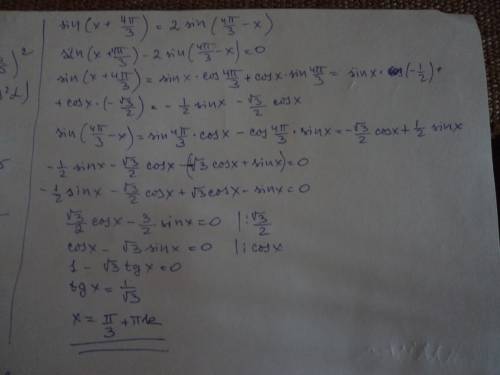 sin(x + 4π/3) = 2 sin(4π/3 - x)
sin(x + 4π/3) - 2 sin(4π/3 - x) = 0
sin(x + 4π/3) = sinx · cos 4π/3 + cosx · sin 4π/3 = sinx · (-1/2) +
+ cosx · (-√3/2) = - 1/2 sinx - √3/2 cosx
sin(4π/3 - x) = sin 4π/3 · cosx - cos 4π/3 · sinx = -√3/2 cosx + 1/2 sinx
-1/2 sinx - √3/2 cosx - (-√3 cosx + sinx) = 0
-1/2 sinx - √3/2 cosx + √3 cosx - sinx = 0
√3/2 cosx - 3/2 sinx = 0 |: √3/2
cosx - √3 sinx = 0 |: cosx
1 - √3 tgx = 0
tgx = 1/√3
x = π/3 + πk